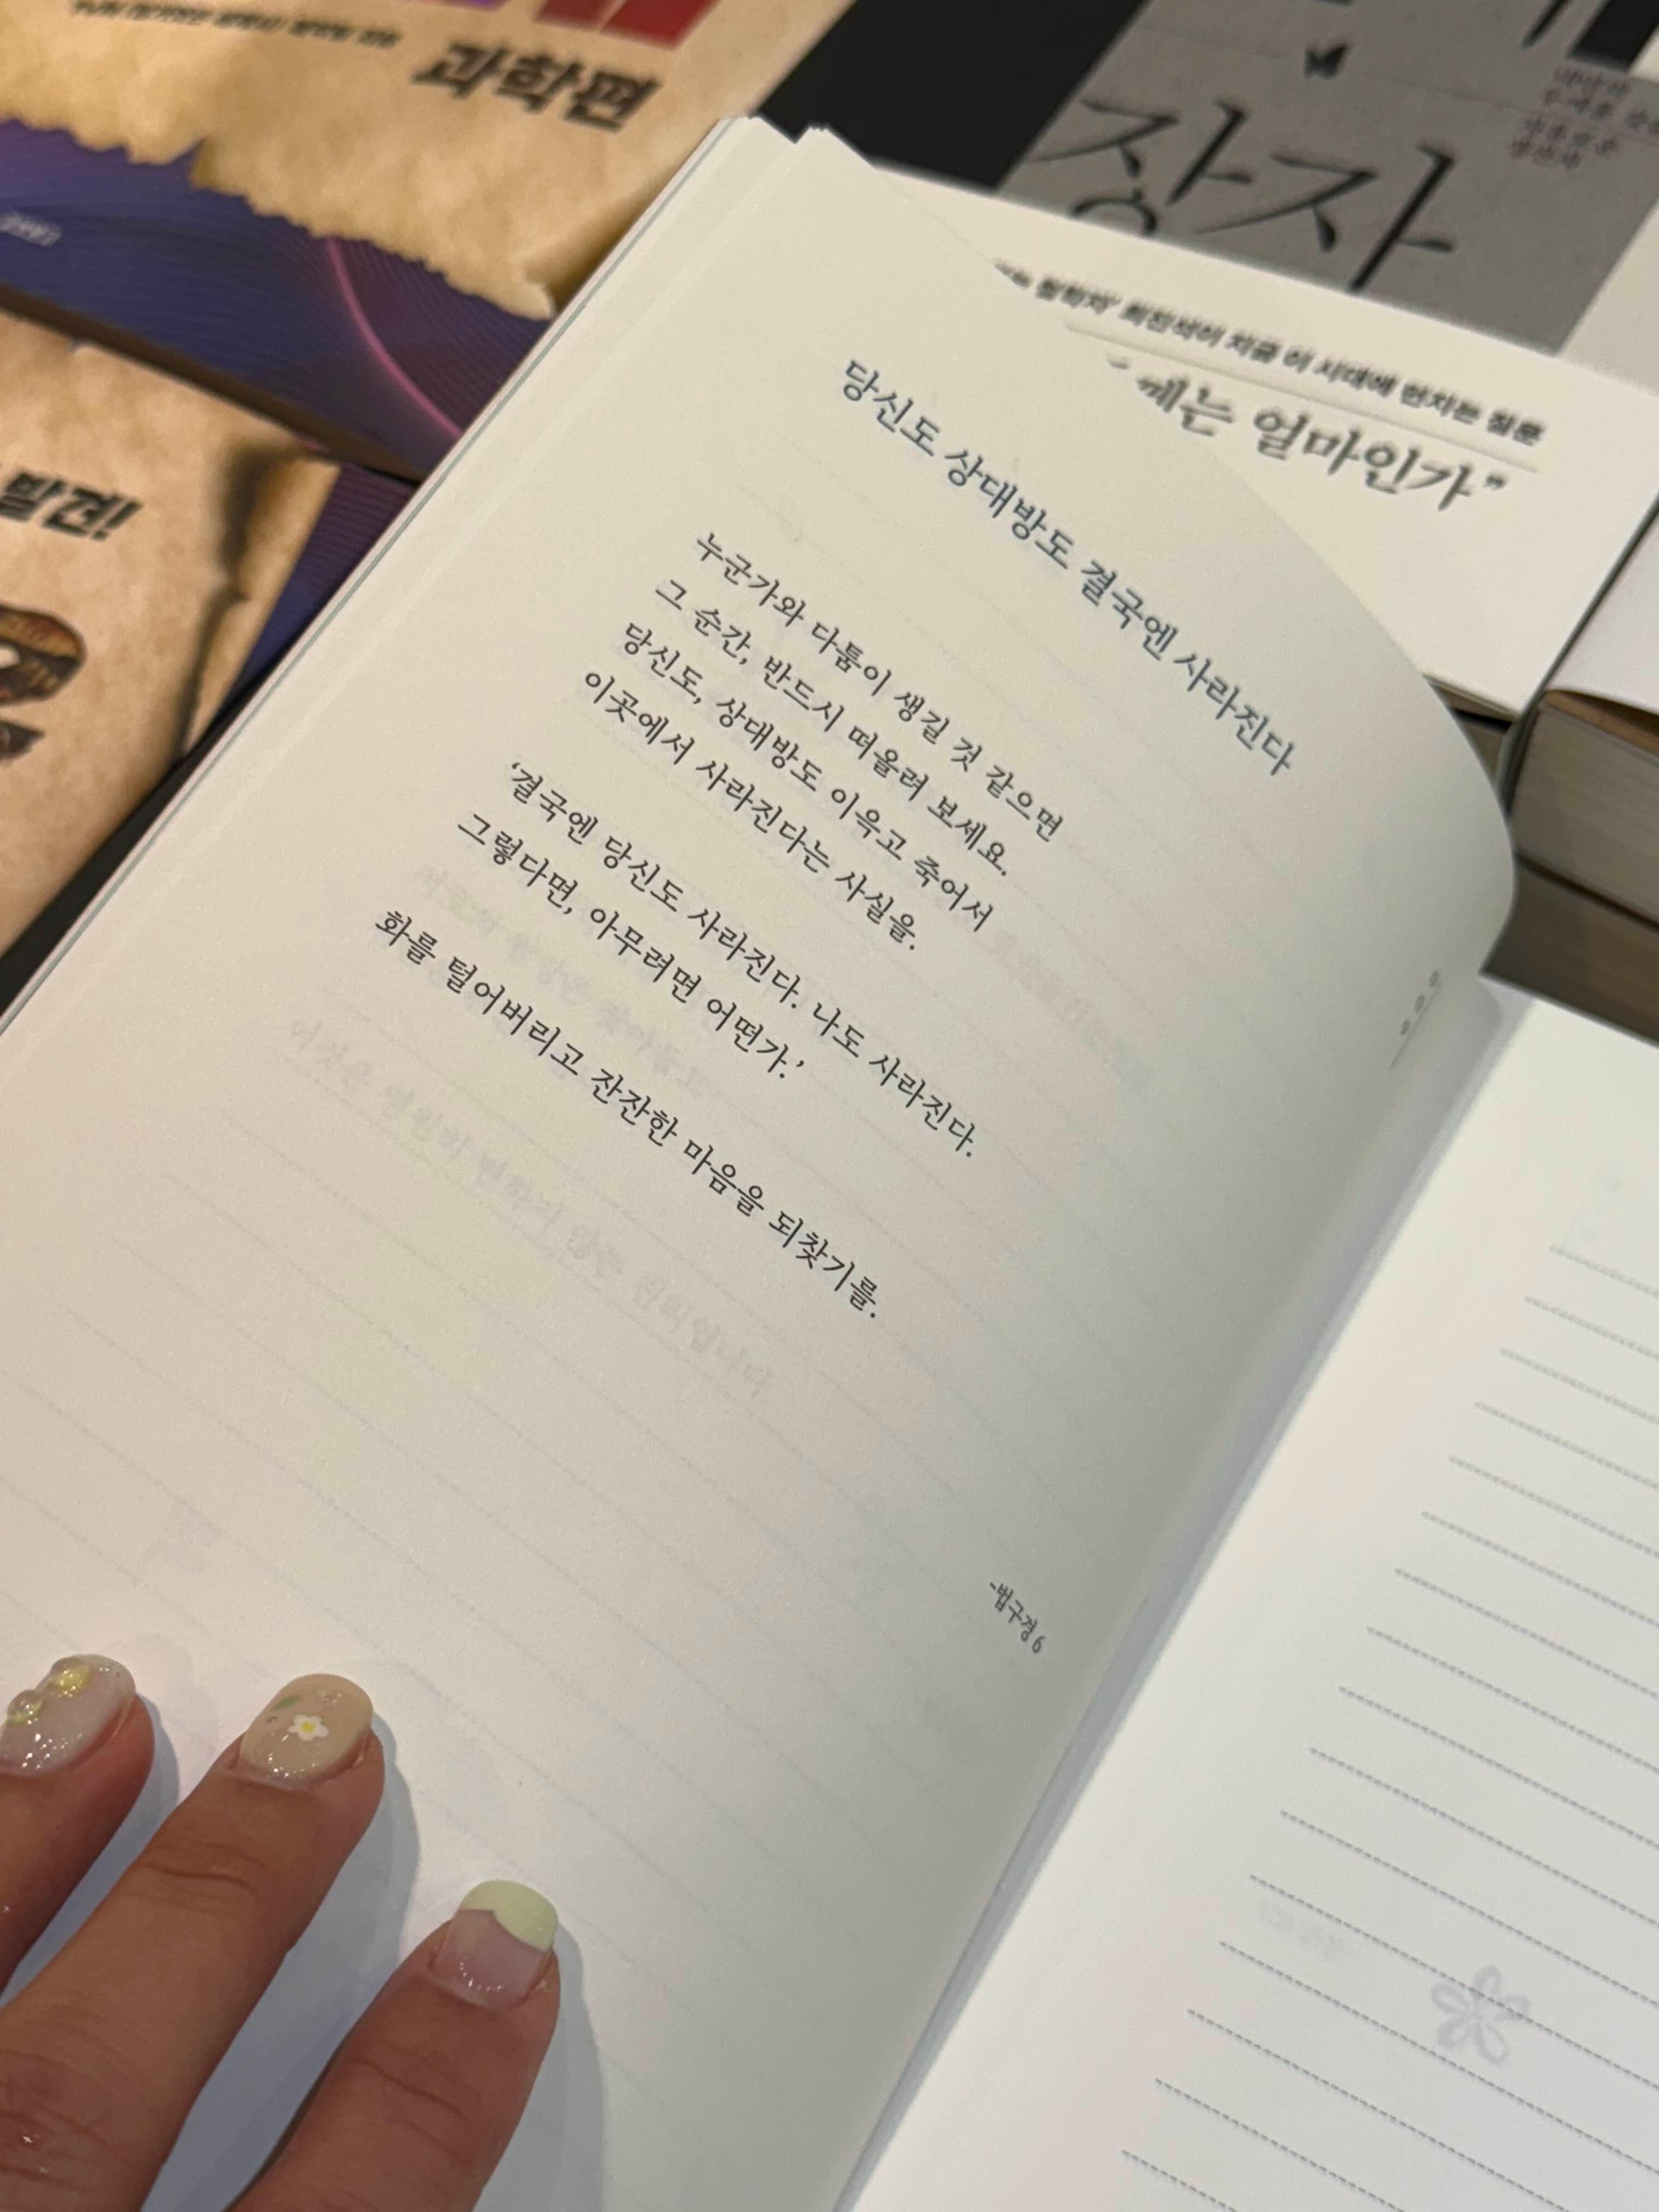 과학편
장자
철학자' 최진석이 처음 이 시대에 던지는 질문
얼마인가”
발견!
당신도 상대방도 결국엔 사라진다
누군가와 다툼이 생길 것 같으면
그 순간, 반드시 떠올려 보세요.
당신도, 상대방도 이윽고 죽어서
이곳에서 사라진다는 사실을.
‘결국엔 당신도 사라진다. 나도 사라진다.
그렇다면, 아무려면 어떤가.’
화를 털어버리고 잔잔한 마음을 되찾기를.
-법구경 6